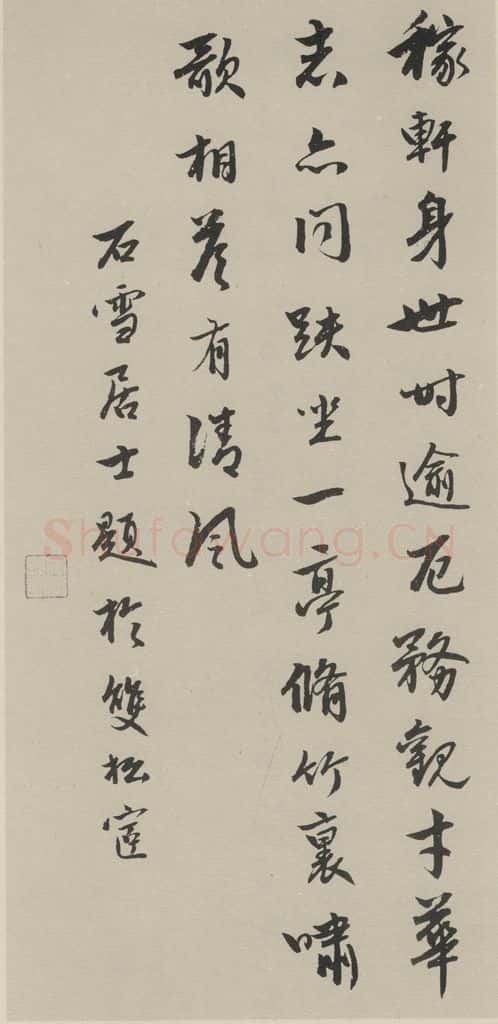 稼軒身世时逾厄務觀才華
志亦同趺坐一亭脩竹裏嘯
歌相答有清风
石雪居士題於雙松窓
Shufawang.CN